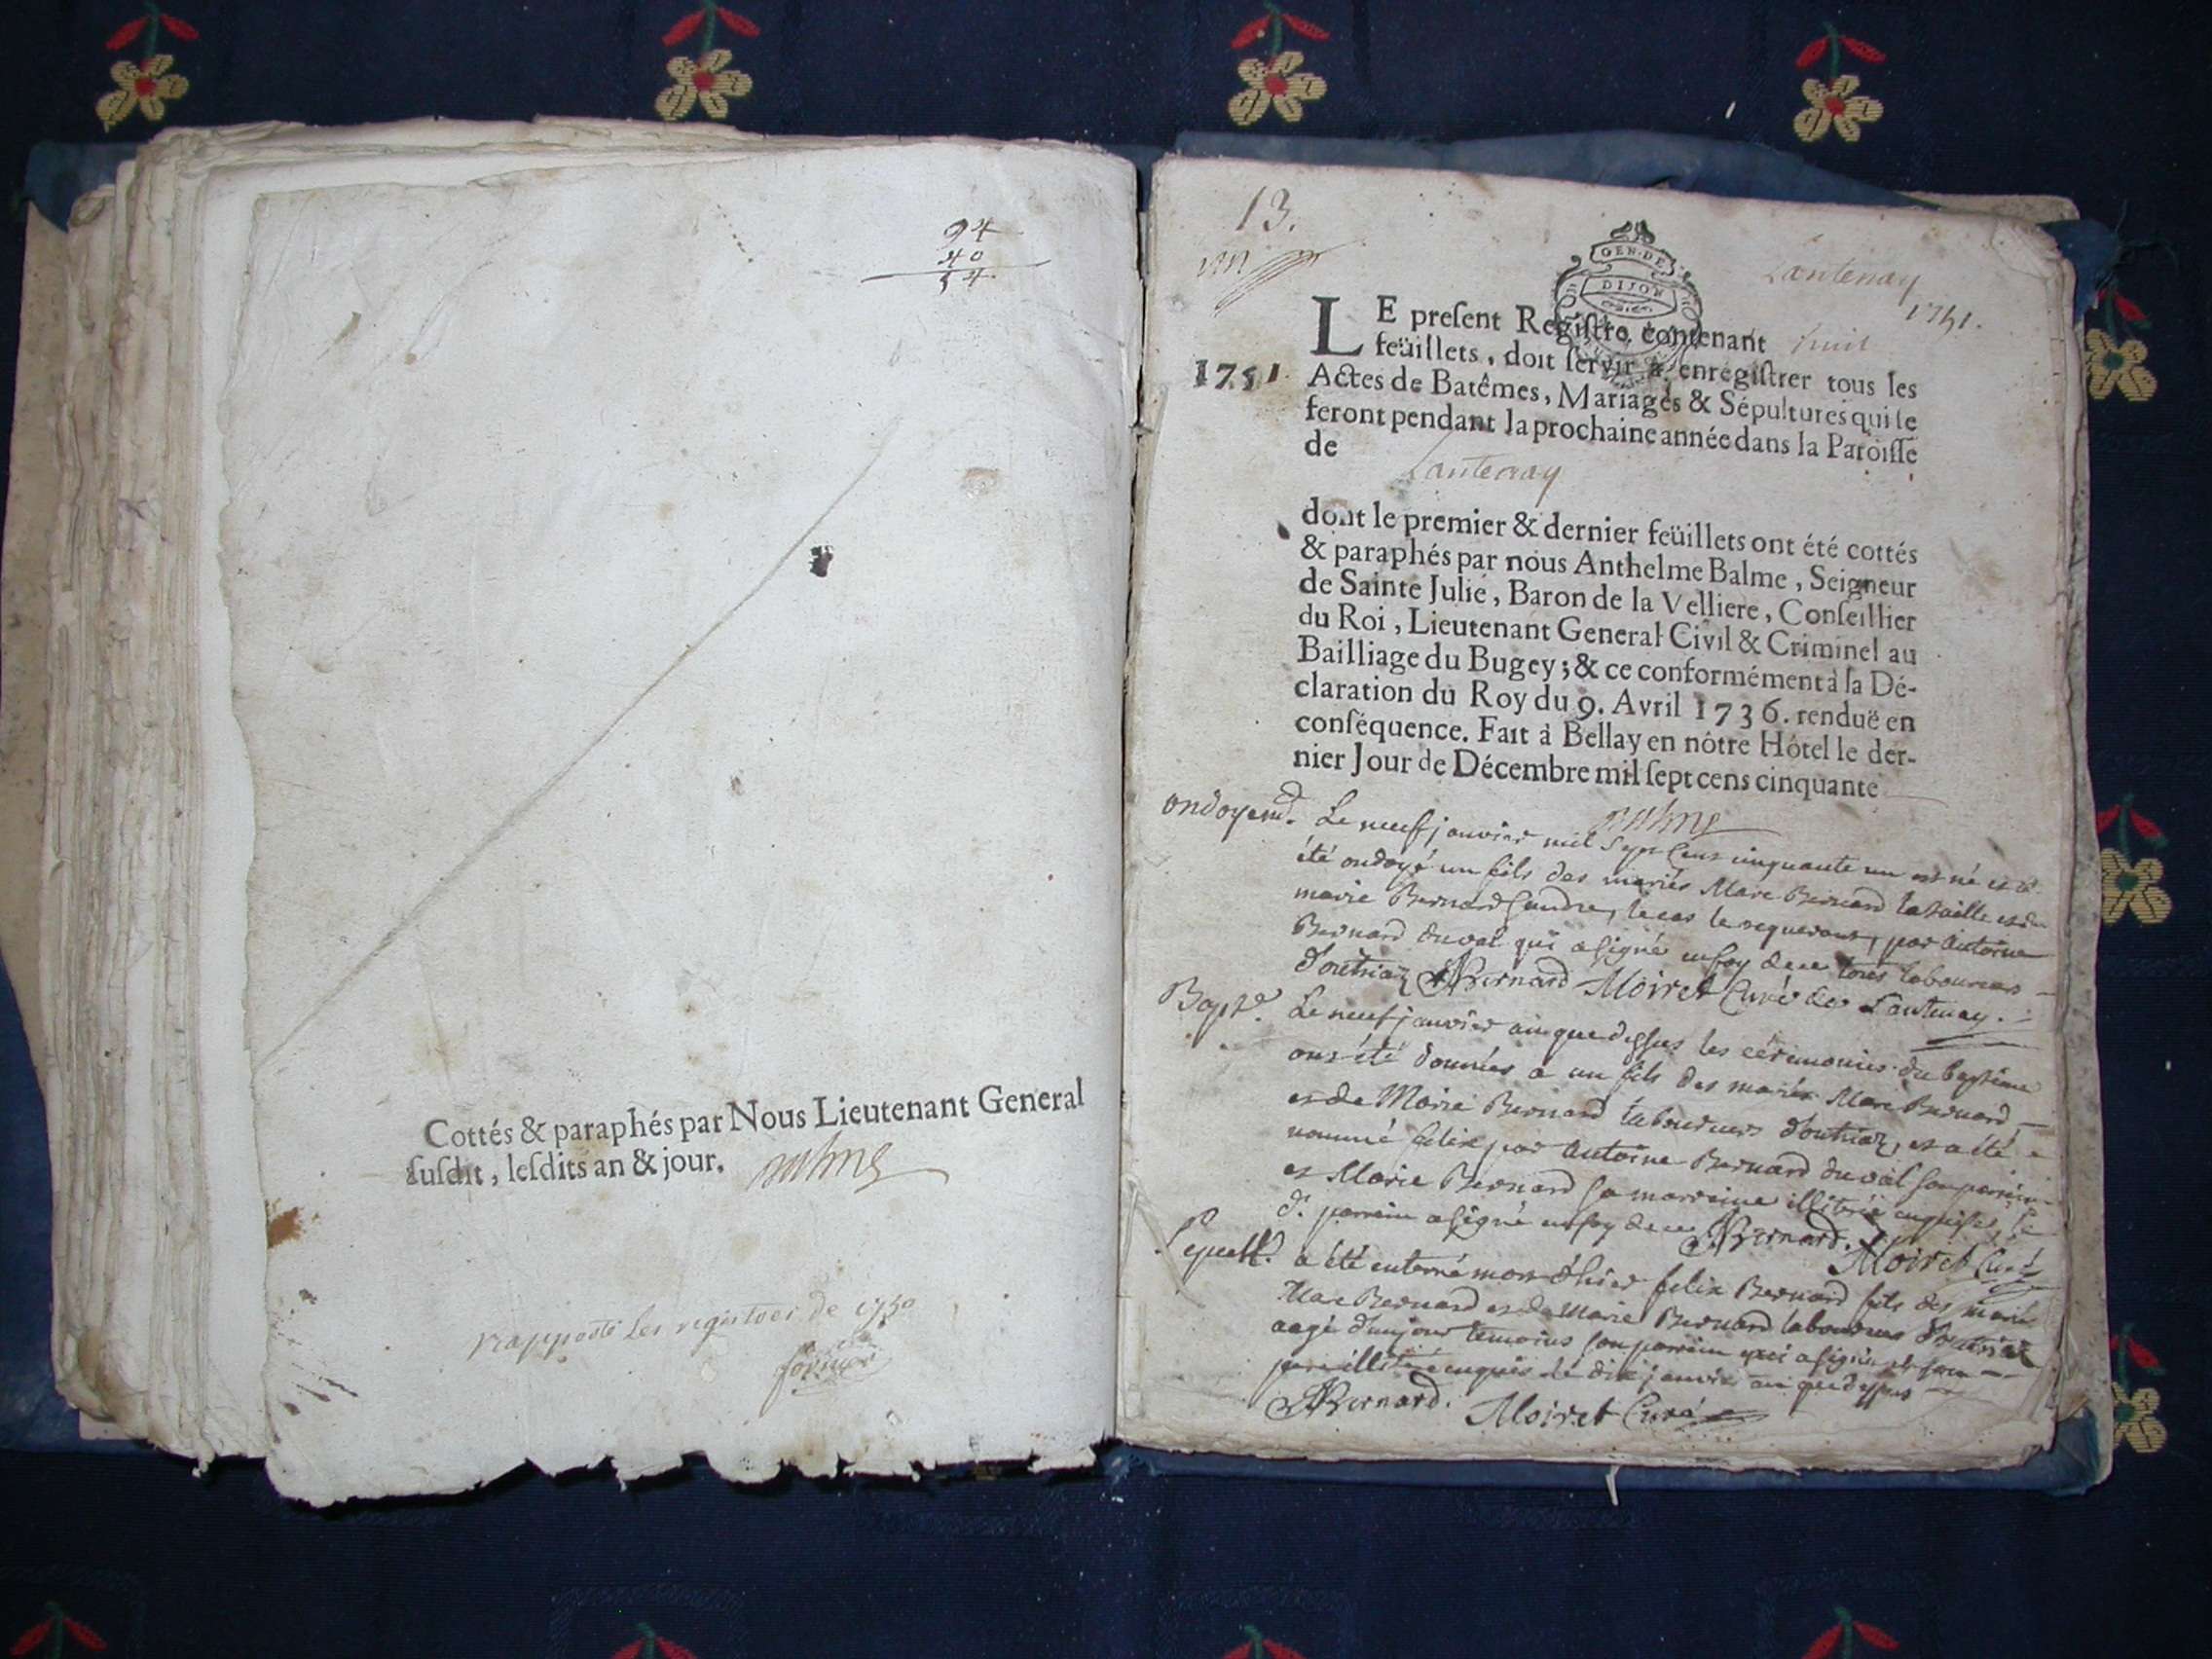 94
40
54
Cottés & paraphés par Nous Lieutenant General
ſuſdit, leſdits an & jour. Balme
rapporté les registres de 1750
13.
GEN. DE
DIJON
Lantenay
1751.
LE preſent Regiſtre contenant huit
feüillets, doit ſervir à enregiſtrer tous les
1751
Actes de Batêmes, Mariages & Sépultures qui ſe
feront pendant la prochaine année dans la Paroiſſe
de Lantenay
dont le premier & dernier feüillets ont été cottés
& paraphés par nous Anthelme Balme, Seigneur
de Sainte Julie, Baron de la Velliere, Conſeillier
du Roi, Lieutenant General Civil & Criminel au
Bailliage du Bugey; & ce conformément à ſa Dé-
claration du Roy du 9. Avril 1736. renduë en
conſéquence. Fait à Bellay en nôtre Hôtel le der-
nier Jour de Décembre mil ſept cens cinquante
Balme
Le neuf janvier mil sept cens cinquante un est né et a
été ondoyé un fils des mariés Marc Bernard et de
marie Bernard le cas le requerant, par Antoine
Bernard duval qui a signé en foy de ce laboureurs
d'outriaz ABernard Moiret Curé de Lantenay.
Bapt.
Le neuf janvier an que dessus les céremonies du baptême
ont été données a un fils des mariés Marc Bernard
et de Marie Bernard laboureurs d'outriaz, et a été
nommé felix par Antoine Bernard duval son parrain
et Marie Bernard sa marraine illiterée enquise, le
d. parrain a signé en foy de ce ABernard. Moiret Curé
Sepult.
a été enterré mort d'hier felix Bernard fils des mariés
Marc Bernard et de Marie Bernard laboureurs d'outriaz
aagé d'un jour temoins son parrain qui a signé et son
pere illiteré enquis le dix janvier an que dessus
ABernard. Moiret Curé